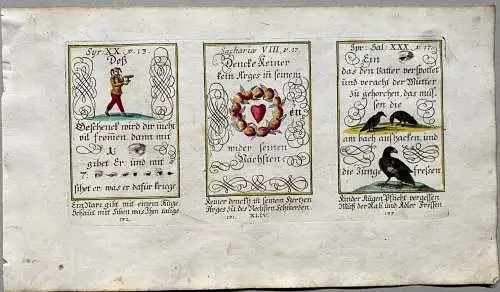 Syr. XX. v. 13.
Deß
Geschenck wird dir nicht
vil frommen dann mit
1.
gibet Er. und mit
7.
sihet er was er dafür kriege
Ein Narr gibt mit einem Auge,
Schaut mit Siben was Ihm tauge.
192.
Zachariæ VIII. v. 17.
Dencke Keiner
kein Arges in seinem
en
wider seinen
Nächsten
Keiner denckh in seinem Hertzen
Arges zu des Nechsten Schmertzen
191.
XLIV.
Spr: Sal: XXX. v. 17.
Ein
das den Vatter verspottet
und veracht der Mutter
zu gehorchen, das müs-
sen die
am bach aushacken, und
die Junge
fressen
Kinder Augen Pflicht vergessen
Muß der Rab und Adler Fressen